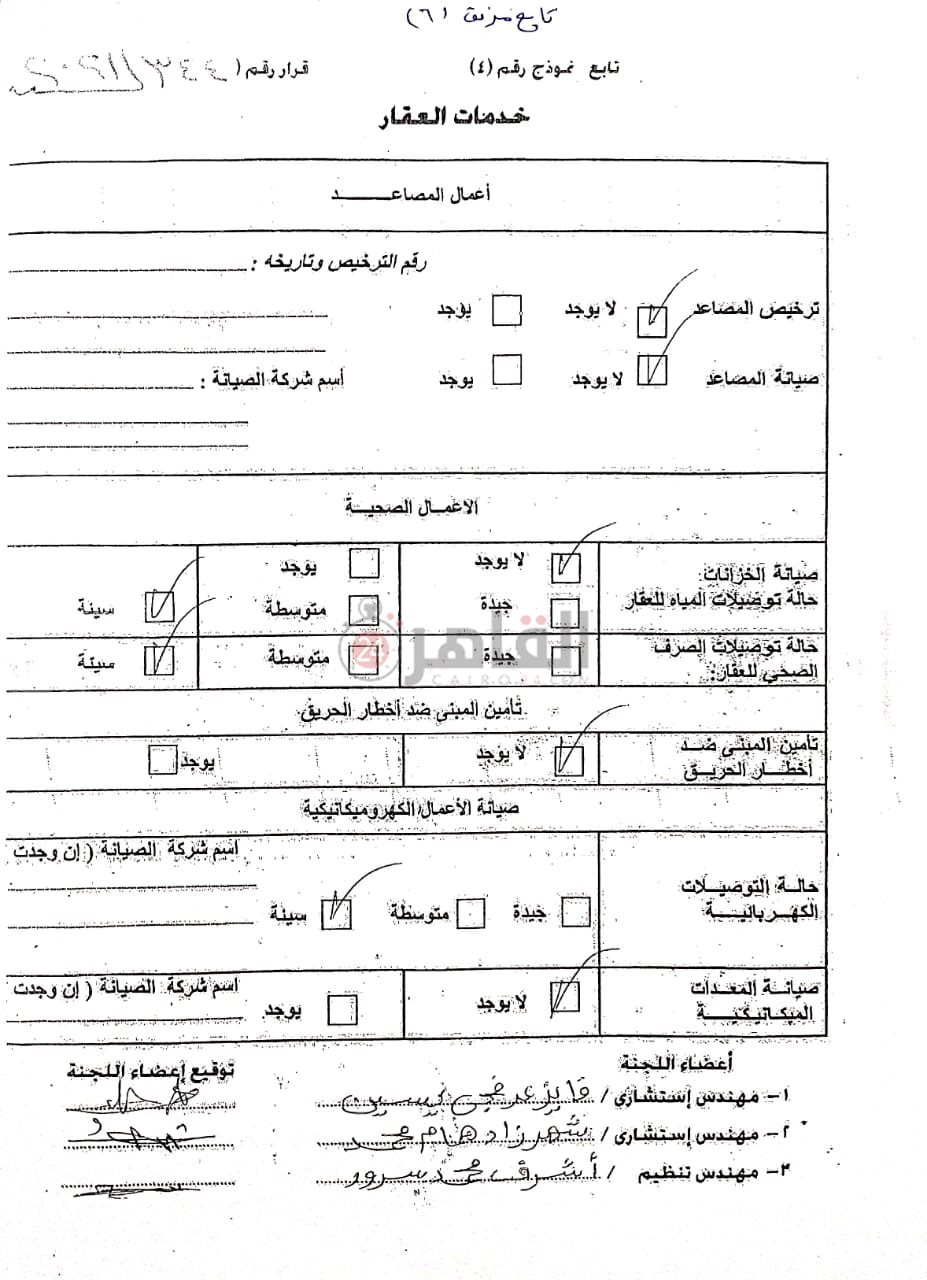 تابع مرفق (٦)
تابع نموذج رقم (٤) قرار رقم ( ٣٤٤
خدمات العقار
أعمال المصاعـــــــد
رقم الترخيص وتاريخه :
ترخيص المصاعد لا يوجد يوجد
صيانة المصاعد لا يوجد يوجد أسم شركة الصيانة :
الاعمـال الصحيـة
صيانة الخزانات: لا يوجد يوجد
حالة توصيلات المياه للعقار جيدة متوسطة سيئة
حالة توصيلات الصرف
الصحي للعقار: جيدة متوسطة سيئة
القاهرة 24
CAIRO24.COM
تأمين المبنى ضد أخطار الحريق
تأمين المبنى ضد
أخطـــار الحريـــق لا يوجد يوجد
صيانة الأعمال الكهروميكانيكية
اسم شركة الصيانة ( إن وجدت
حالـة التوصيــلات
الكهـربائيـــة جيدة متوسطة سيئة
صيانـة المعـدات
الميكانيكيـــة لا يوجد يوجد اسم شركة الصيانة ( إن وجدت
أعضاء اللجنة توقيع إعضاء اللجنة
١- مهندس إستشارى / فايز
٢- مهندس إستشارى / شهرزاد هام محمد
٣- مهندس تنظيم / أشرف محمد سرور